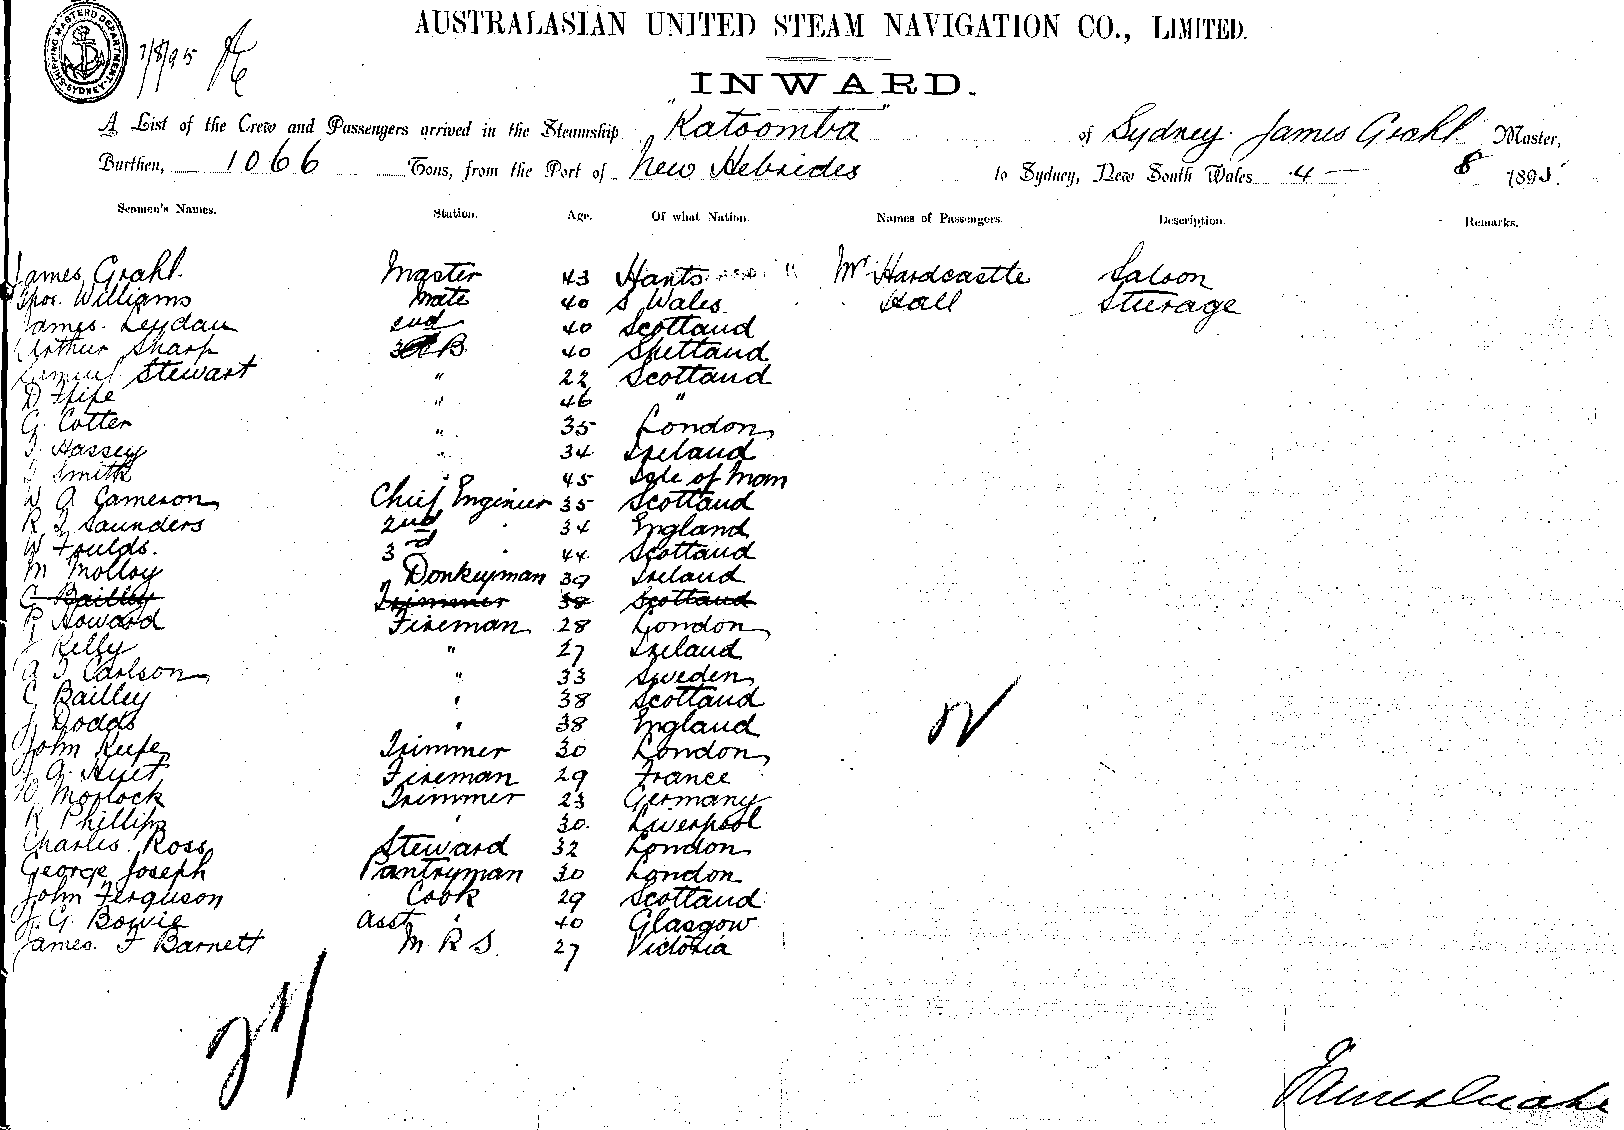 SHIPPING MASTERS DEPARTMENT SYDNEY
7/8/95
AUSTRALASIAN UNITED STEAM NAVIGATION CO., LIMITED.
INWARD.
A List of the Crew and Passengers arrived in the Steamship "Katoomba" of Sydney James Grahl Master,
Burthen, 1066 Tons, from the Port of New Hebrides to Sydney, New South Wales 4 - 8 1895.
Seamen's Names. Station. Age. Of what Nation. Names of Passengers. Description. Remarks.
James Grahl. Master 43 Hants Mr Hardcastle Saloon
Thos. Williams Mate 40 S Wales Hall Steerage
James. Leydau 2nd 40 Scotland
Arthur Sharp AB 40 Shetland
Samuel Stewart " 22 Scotland
D Fyife " 46 "
G. Cotter " 35 London
T. Hassey " 34 Ireland
J Smith " 45 Isle of Man
W A Cameron Chief Enginier 35 Scotland
R J Saunders 2nd " 34 England
W Foulds. 3rd " 44 Scotland
M Molloy " Donkeyman 39 Ireland
C Bailley Trimmer 38 Scotland
R Howard Fireman 28 London
J Kelly " 27 Ireland
A J Carlson " 33 Sweden
C Bailley " 38 Scotland
J. Dodds " 38 England
John Keefe Trimmer 30 London
A. Huet Fireman 29 France
W Morlock Trimmer 23 Germany
R Phillips " 30. Liverpool
Charles Ross Steward 32 London
George Joseph Pantryman 30 London
John Ferguson Cook 29 Scotland
J. G. Bowie Asst " 40 Glasgow
James. F Barnett M R S. 27 Victoria
2/
27/
James Grahl